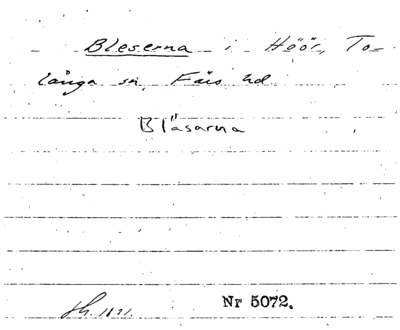 Bleserna i Höör, To-
långa sn, Färs hd.
Bläsarna
Sk. 1821.
Nr 5072.